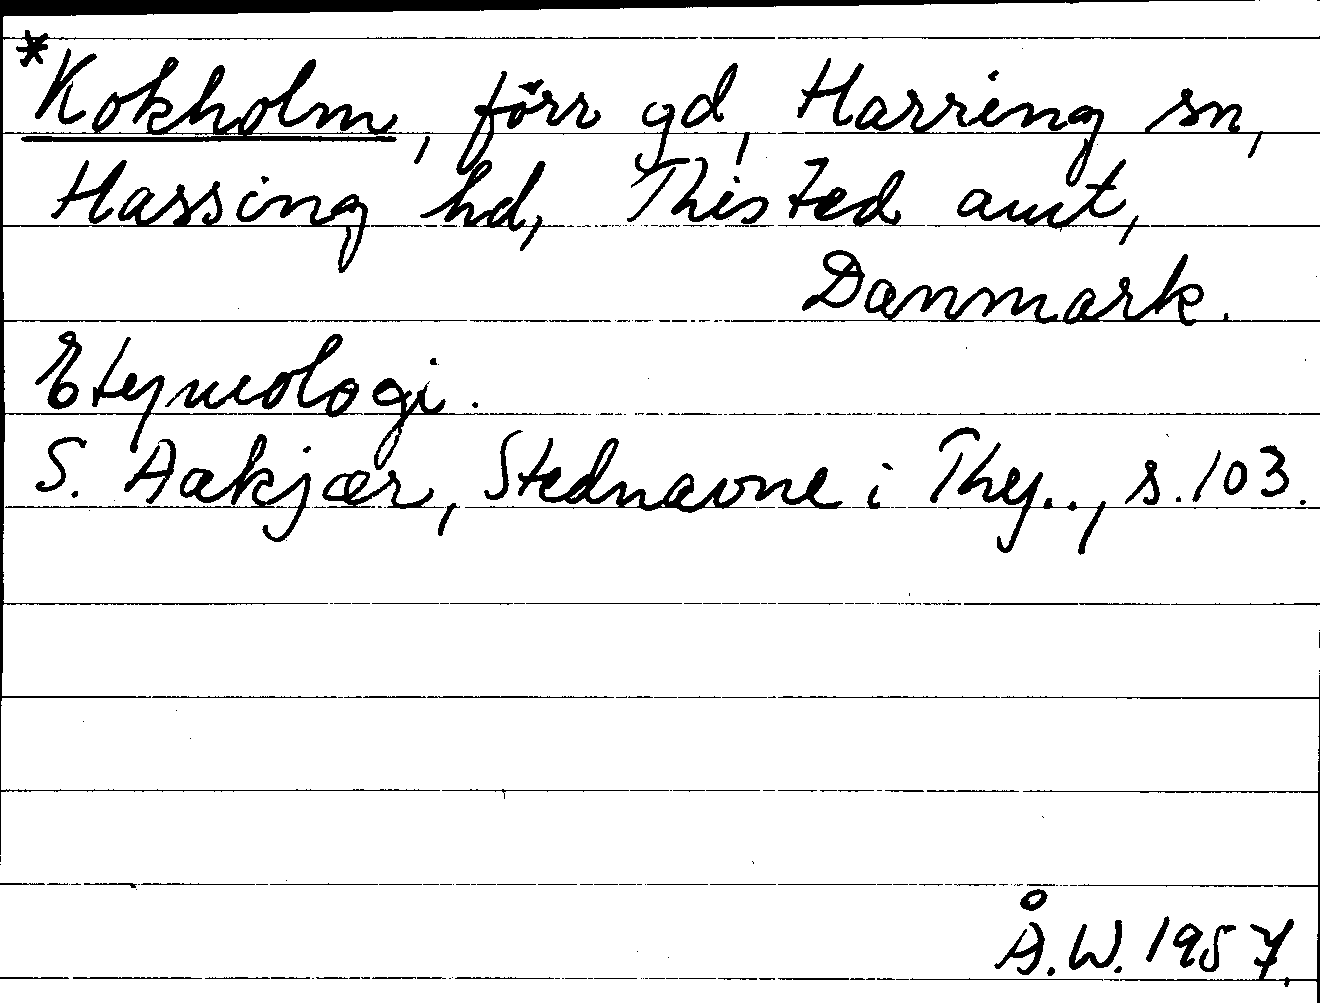 *Kokholm, förr gd, Harring sn,
Hassing hd, Thisted amt,
Danmark.
Etymologi.
S. Aakjær, Stednavne i Thy.., s. 103.
Å.W. 1957.